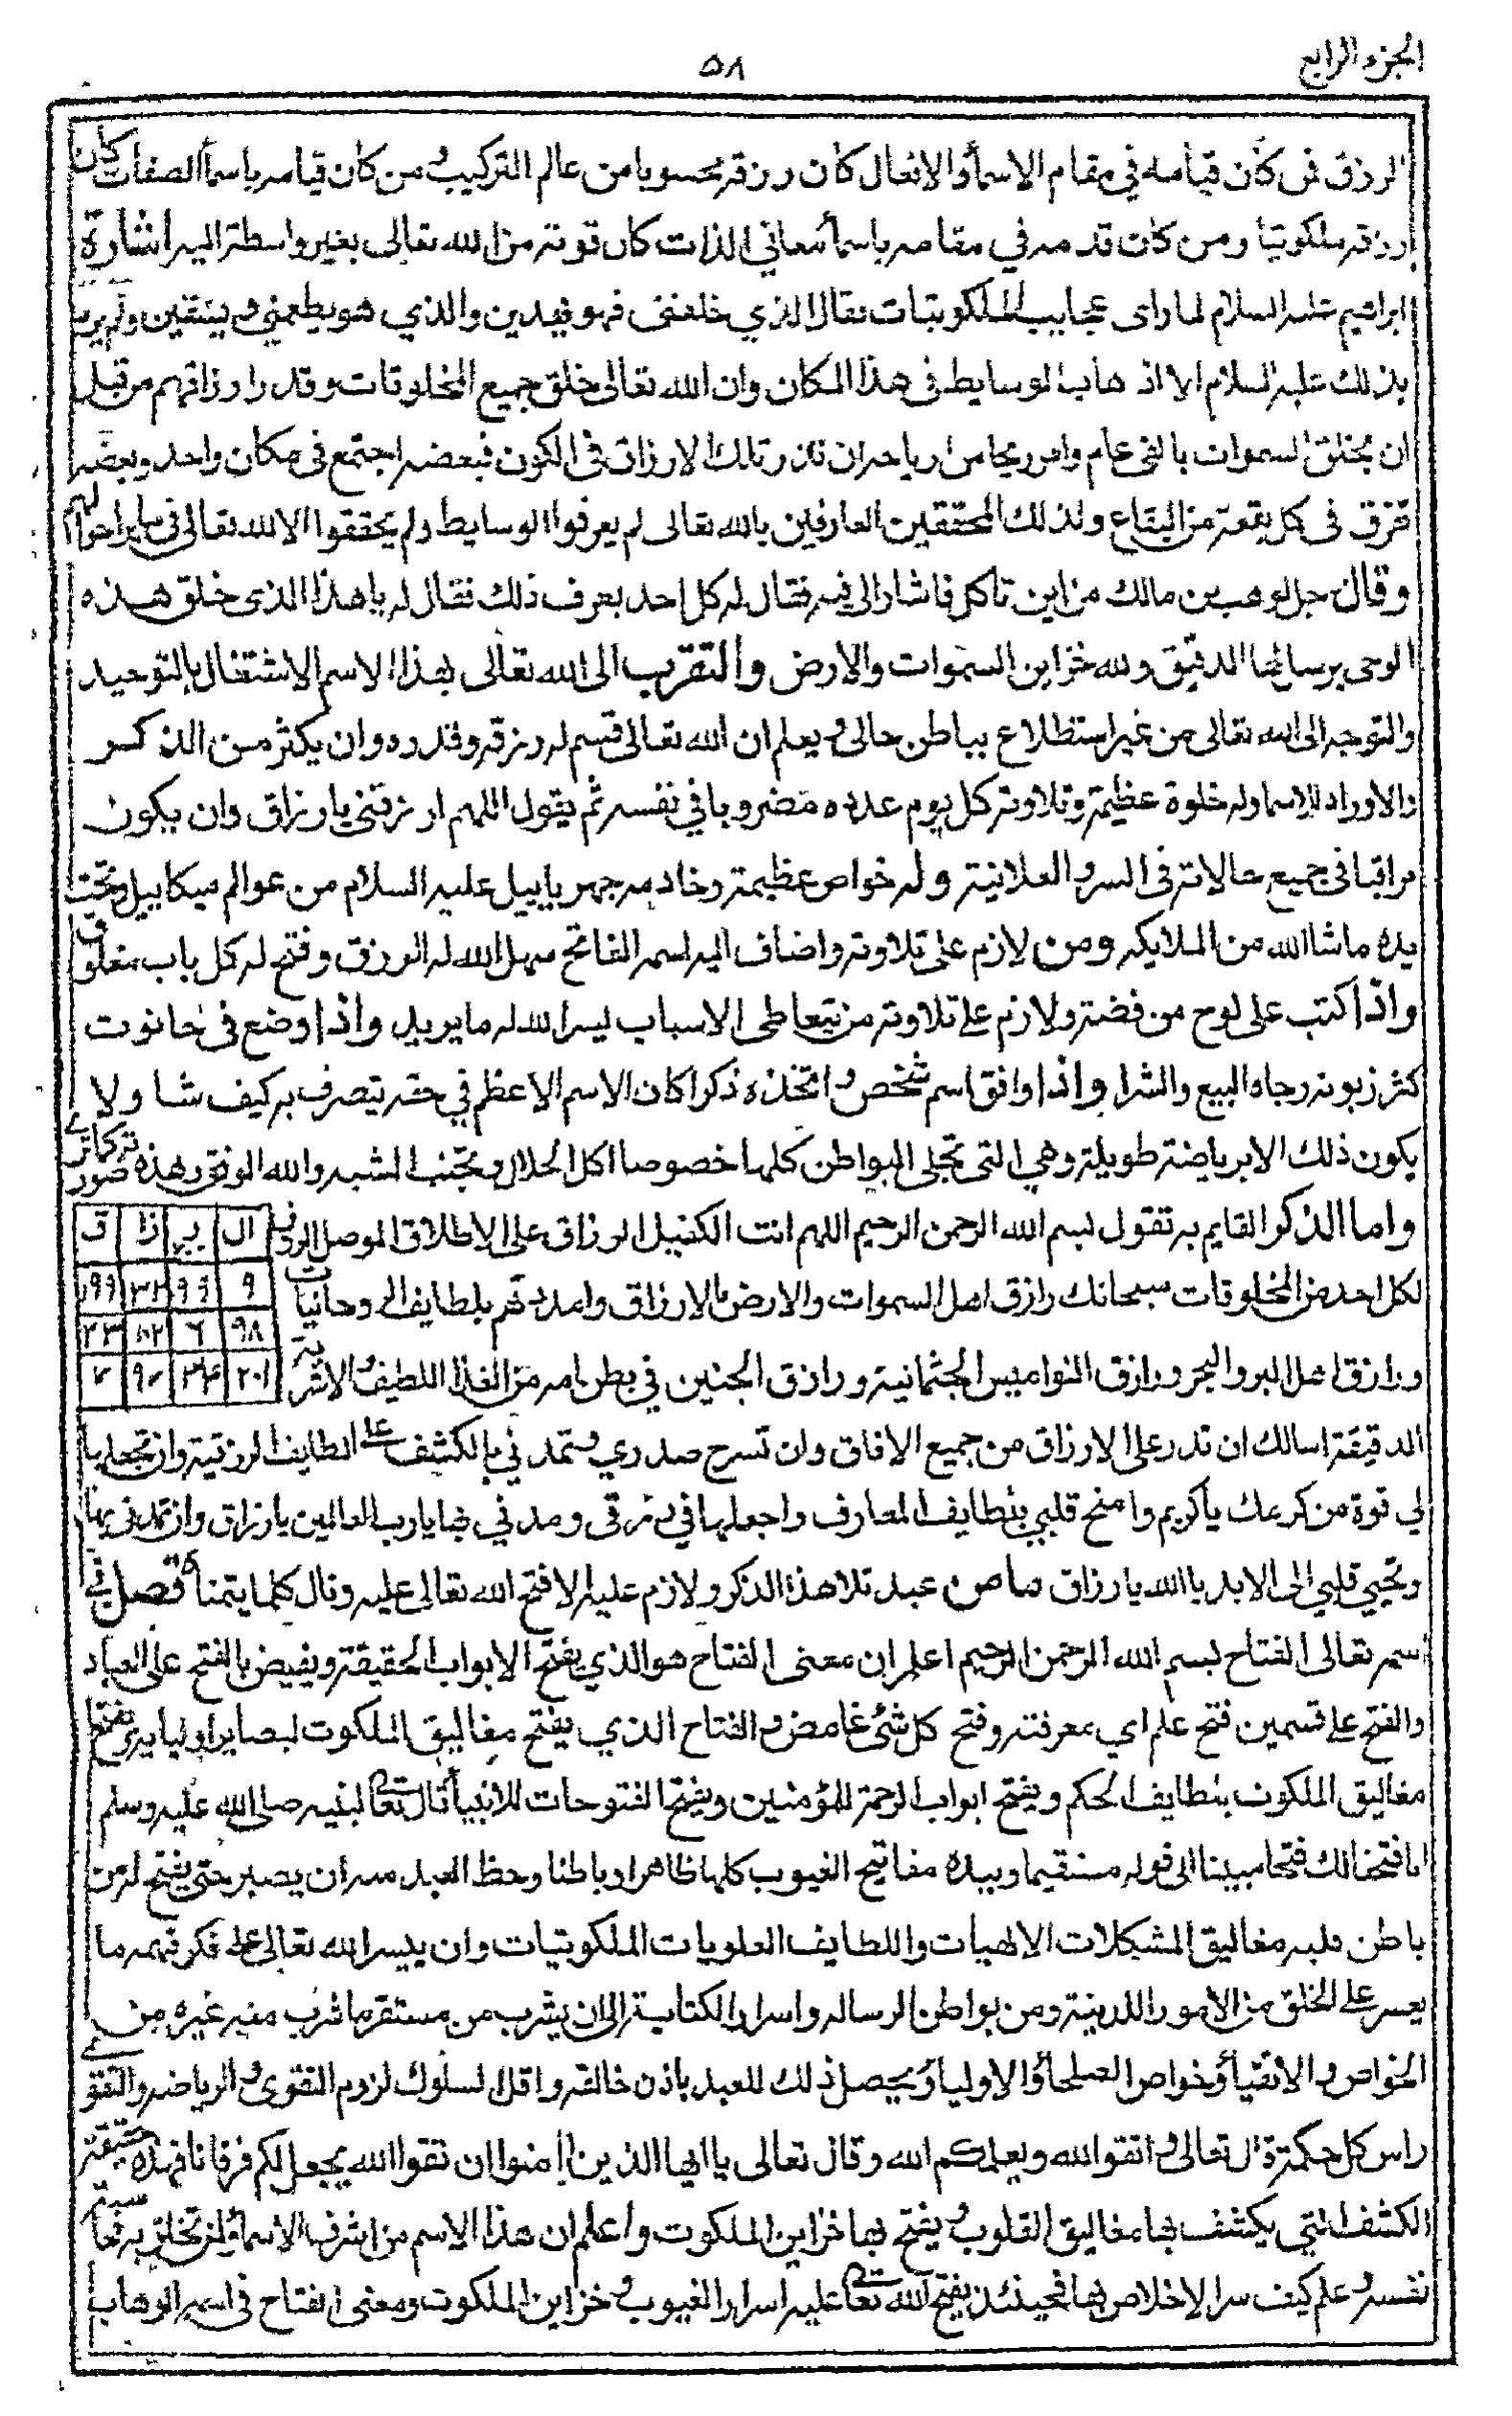 الجزء الرابع
٥٨
الرزق فمن كان قيامه في مقام الاسمأ والافعال كان رزقه محسوبا من عالم التركيب ومن كان قيامه باسمأ الصفات كان
رزقه ملكوتيا ومن كان قدمه في مقامه باسمأ معاني الذات كان قوته من الله تعالى بغير واسطة اليه اشارة
ابراهيم عليه السلام لما راى عجايب الملكوتيات فقال الذي خلقني فهو يهدين والذي هو يطعمني ويسقين ولم يرد
بذلك عليه السلام الا اذهاب الوسايط في هذا المكان وان الله تعالى خلق جميع المخلوقات وقدر ارزاقهم من قبل
ان يخلق السموات بالفى عام وامر رياحا من ارياحه ان تذر تلك الارزاق في الكون فبعضه اجتمع في مكان واحد وبعضه
تفرق في كل بقعة من البقاع ولذلك المحققين العارفين بالله تعالى لم يعرفوا الوسايط ولم يحققوا الا الله تعالى في ساير احوالهم
وقال رجل لوهب بن مالك من اين تاكل فاشار الى فيه فقال له كل احد يعرف ذلك فقال له يا هذا الذى خلق هذه
الرحى يرسل لها الدقيق ولله خزاين السموات والارض والتقرب الى الله تعالى بهذا الاسم الاشتغال بالتوحيد
والتوجه الى الله تعالى من غير استطلاع بباطن حالى ويعلم ان الله تعالى قسم له رزقه وقدره وان يكثر من الذكر
والاوراد للاسما وله خلوة عظيمة وتلاوته كل يوم عدده مضروبا في نفسه ثم يقول اللهم ارزقني يا رزاق وان يكون
مراقبا في جميع حالاته في السر والعلانية وله خواص عظيمة وخادمه جهريابيل عليه السلام من عوالم ميكابيل وتحت
يده ماشا الله من الملايكه ومن لازم على تلاوته واضاف اليه اسمه الفاتح سهل الله له الرزق وفتح له كل باب مغلق
واذا كتب على لوح من فضة ولازم على تلاوته من يتعاطى الاسباب يسر الله له ما يريد واذا وضع في حانوت
كثر زبونه وجاه البيع والشرا واذا وافق اسم شخص واتخذه ذكرا كان الاسم الاعظم في حقه يتصرف به كيف شا ولا
يكون ذلك الا برياضة طويلة وهي التى تجلى البواطن كلها خصوصا اكل الحلال وتجنب الشبه والله الموفق وهذه صورته كما ترى
واما الذكر القايم به تقول بسم الله الرحمن الرحيم اللهم انت الكفيل الرزاق على الاطلاق الموصل الرزق
ال | ير | زا | ق
لكل احد من المخلوقات سبحانك رازق اهل السموات والارض بالارزاق وامددتهم بلطايف الروحانيات
٩ | ٩٩ | ٣٢ | ١٩٩
٩٨ | ٦ | ١٠٢ | ٣٣
ورازق اهل البر والبحر ورازق النواميس الجثمانية ورازق الجنين في بطن امه من الغذا اللطيف والاشربة
٢٠١ | ٣٤ | ٩٧ | ٧
الدقيقة اسالك ان تدر على الارزاق من جميع الافاق وان تسرح صدري وتمدني بالكشف على اللطايف الرزقية وان تجعلها
لي قوة من كرمك يا كريم وامنح قلبي بلطايف المعارف واجعلها في رزقى ومدني بها يا رب العالمين يا رزاق وان تمدني بها
وتحيي قلبي الى الابد يا الله يا رزاق ما من عبد تلا هذا الذكر ولازم عليه الا فتح الله تعالى عليه ونال كلما يتمناه فصل في
اسمه تعالى الفتاح بسم الله الرحمن الرحيم اعلم ان معنى الفتاح هو الذي يفتح الابواب الحقيقة ويفيض بالفتح على العباد
والفتح على قسمين فتح علم اي معرفته وفتح كل شئ غامض والفتاح الذي يفتح مغاليق الملكوت لبصاير اوليايه ويفتح
مغاليق الملكوت بلطايف الحكم ويفتح ابواب الرحمة للمؤمنين ويفتح الفتوحات للانبيأ قال تعالى لنبيه صلى الله عليه وسلم
انا فتحنا لك فتحا مبينا الى قوله مستقيما وبيده مفاتيح الغيوب كلها ظاهرا وباطنا وحظ العبد منه ان يصبر حتى يفتح له من
باطن قلبه مغاليق المشكلات الالهيات واللطايف العلويات الملكوتيات وان ييسر الله تعالى على فكر فهمه ما
يعسر على الخلق من الامور اللدينية ومن بواطن الرساله واسرار الكتابة الى ان يشرب من مستقر ما شرب منه غيره من
الخواص والاتقيأ وخواص الصلحأ والاوليأ ويحصل ذلك للعبد باذن خالقه واقل السلوك لزوم التقوى والرياضه والتقوى
راس كل حكمة قال تعالى واتقوا الله ويعلمكم الله وقال تعالى يا ايها الذين امنوا ان تتقوا الله يجعل لكم فرقانا فهذه حقيقة
الكشف التي يكشف بها مغاليق القلوب ويفتح بها خزاين الملكوت واعلم ان هذا الاسم من اشرف الاسمأ لمن تخلق به
نفسه وعلم كيف سر الاخلاص بها فحينئذ يفتح الله تعالى عليه اسرار الغيوب وخزاين الملكوت ومعنى الفتاح في اسمه الوهاب